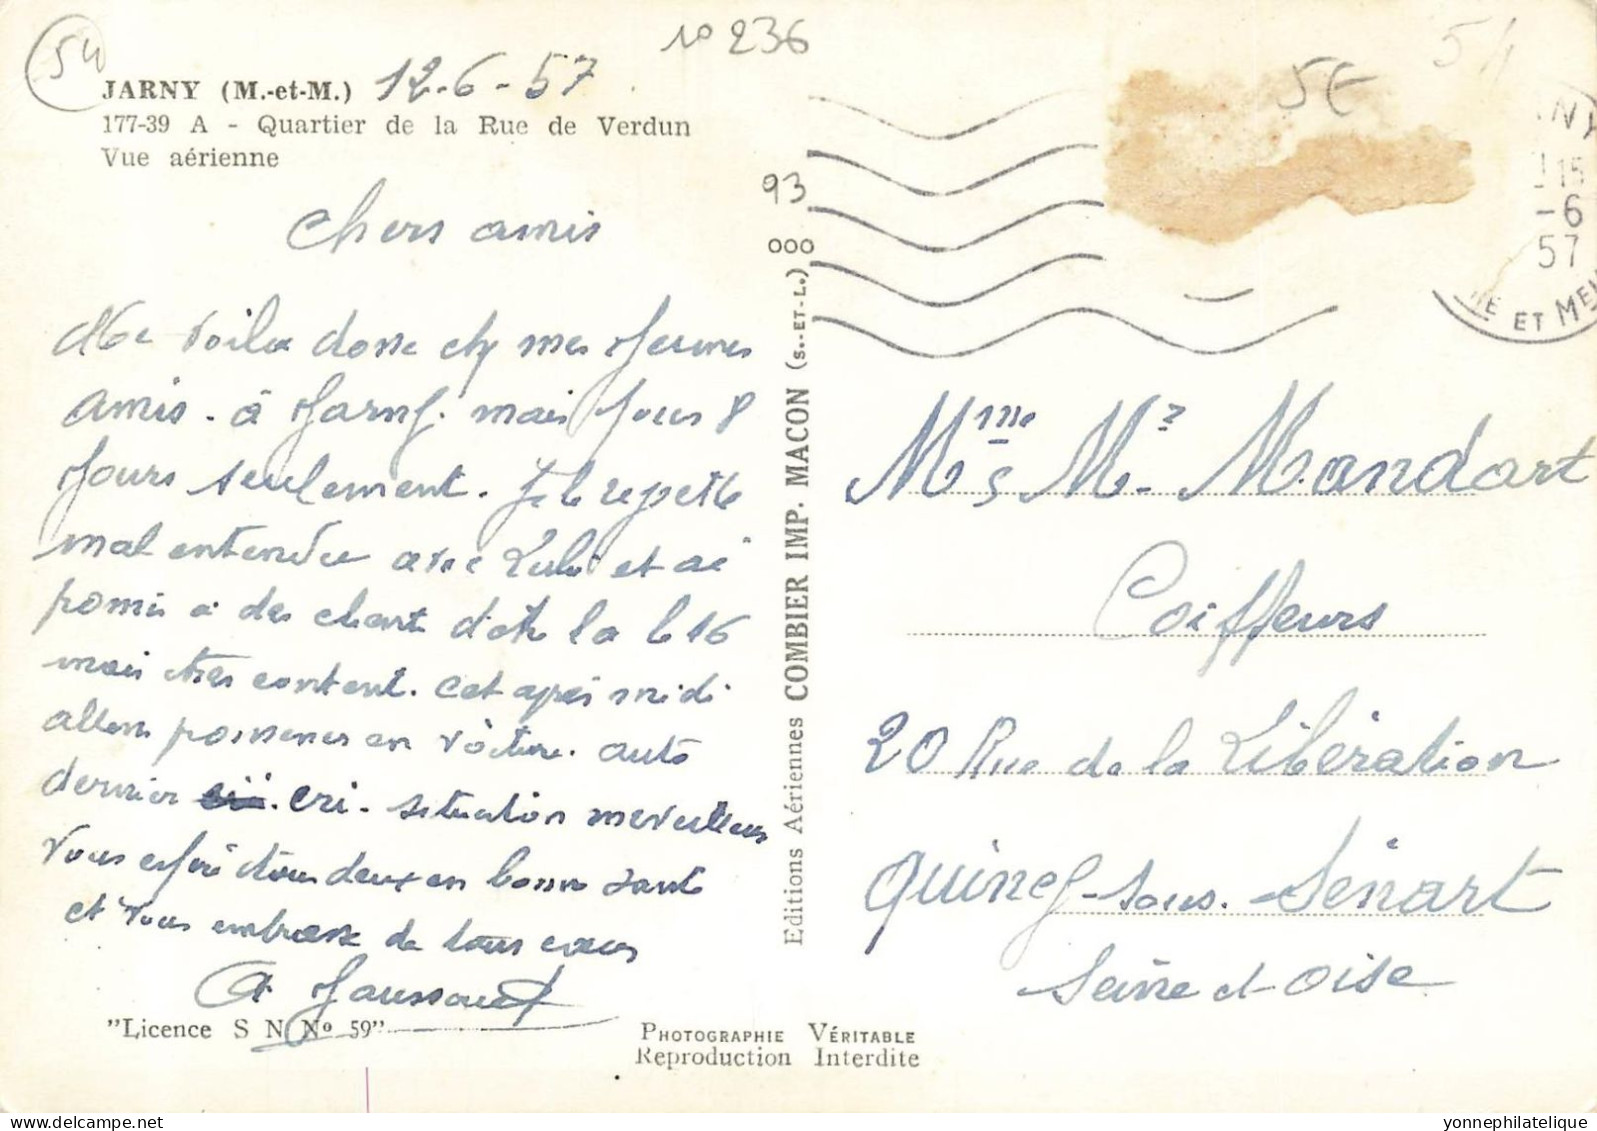 54
N° 236
5€
54
JARNY (M.-et-M.) 12-6-57
177-39 A - Quartier de la Rue de Verdun
Vue aérienne
93
000
NY
15
-6
57
HE ET MEU
Chers amis
Me voila donc chz mes jeunes
amis. à Jarny. mais pour 8
jours seulement.
mal entendu avec Lulu et ai
des la le 16
mais très content. cet après midi
allons en voiture. auto
dernier cri. situation merveilleus
Vous tous deux en bonne santé
et vous embrasse de tous cœurs
"Licence S N N° 59"
Editions Aériennes COMBIER IMP. MACON (S.-ET-L.)
PHOTOGRAPHIE VÉRITABLE
Reproduction Interdite
Mme M. Mandart
Coiffeurs
20 Rue de la Libération
Quincy-sous-Sénart
Seine et Oise
yonnephilatelique